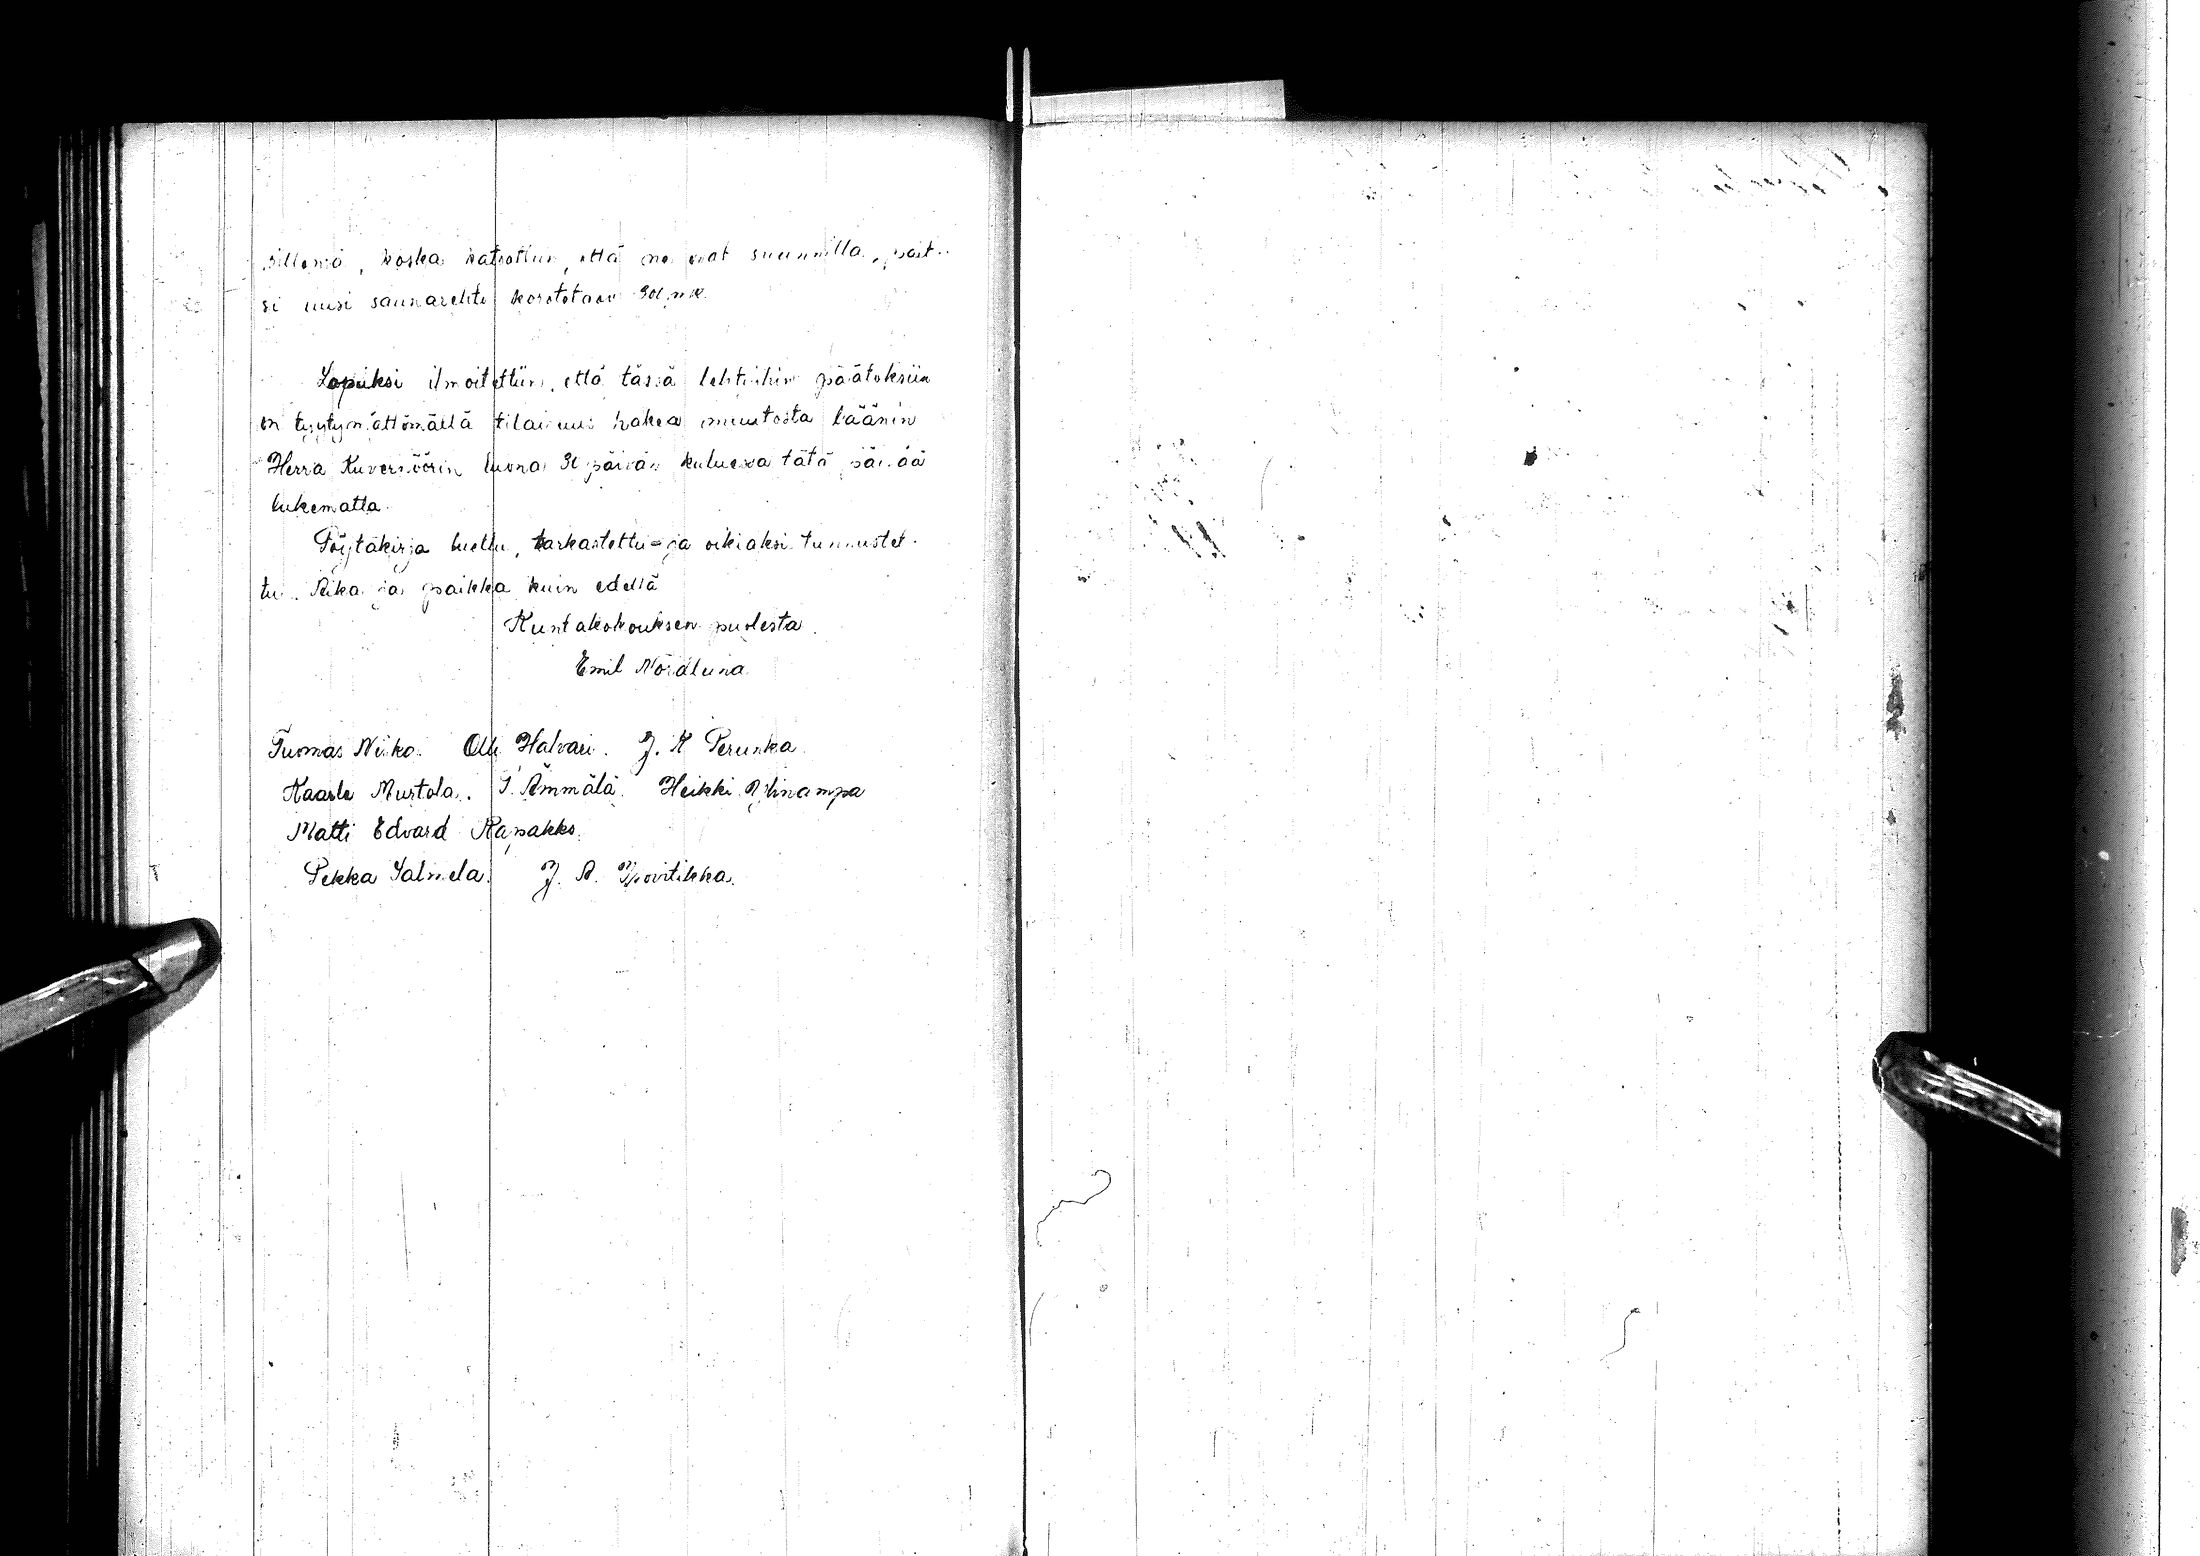 sillensä, koska katsottiin, että ne ovat suunnilla, pait-
si uusi saunarehti korotetaan mk.
Lopuksi ilmoitettiin, että tässä tehtyihin päätöksiin
on tyytymättömällä tilaisuus hakea muutosta läänin
Herra Kuvernöörin luona 30 päivän kuluessa tätä päivää
lukematta.
Pöytäkirja luettu, tarkastettu ja oikiaksi tunnustet-
tu. Aika ja paikka kuin edellä
Kuntakokouksen puolesta.
Emil Nordlund
Tuomas Niiko. Olli Halvari. J. K Perunka.
Kaarle Mustola. Ämmälä. Heikki Ylinampa
Matti Edvard Rapakko.
Pekka Salmela. J. A.